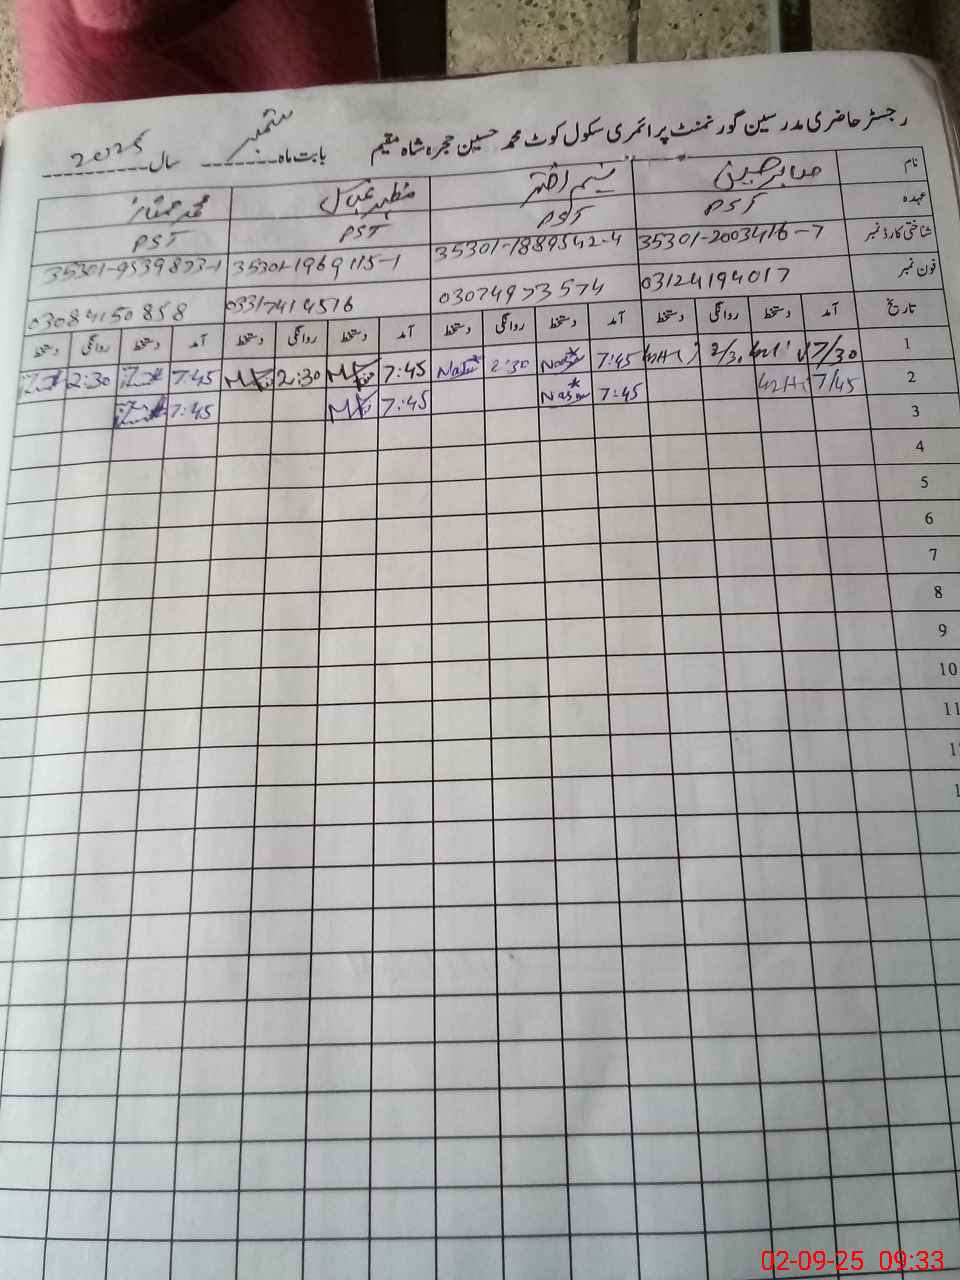 رجسٹر حاضری مدرسین گورنمنٹ پرائمری سکول کوٹ محمد حسین حجرہ شاہ مقیم بابت ماہ ستمبر سال 2025
نام صابر حسین نسیم اختر مظہر عباس محمد ممتاز
عہدہ PST PST PST PST
شناختی کارڈ نمبر 35301-2003416-7 35301-1889542-4 35301-1969115-1 35301-9539873-1
فون نمبر 03124194017 03074973574 03317414576 03084150858
تاریخ آمد دستخط روانگی دستخط آمد دستخط روانگی دستخط آمد دستخط روانگی دستخط آمد دستخط روانگی دستخط
1 7/30 2/30 7:45 Nasim 2:30 Nasim 7:45 2:30 7:45 2:30
2 7/45 7:45 Nasim 7:45 7:45
3
4
5
6
7
8
9
10
11
02-09-25 09:33